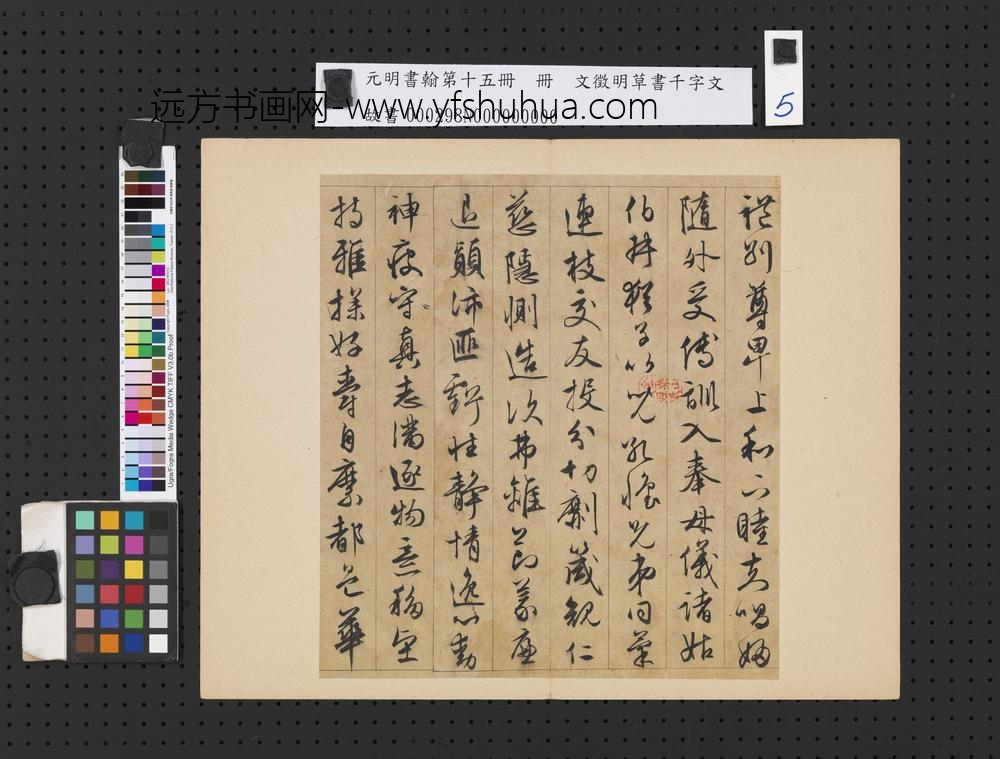 元明書翰第十五冊　冊　文徵明草書千字文
远方书画网-www.yfshuhua.com
故書 000298N000000000
5
禮別尊卑上和下睦夫唱婦
隨外受傅訓入奉母儀諸姑
伯叔猶子比兒孔懷兄弟同氣
連枝交友投分切劘箴規仁
慈隱惻造次弗離節義廉
退顛沛匪虧性靜情逸心動
神疲守真志滿逐物意移堅
持雅操好爵自縻都邑華
Ugra/Fogra Media Wedge CMYK TIFF V3.0b Proof